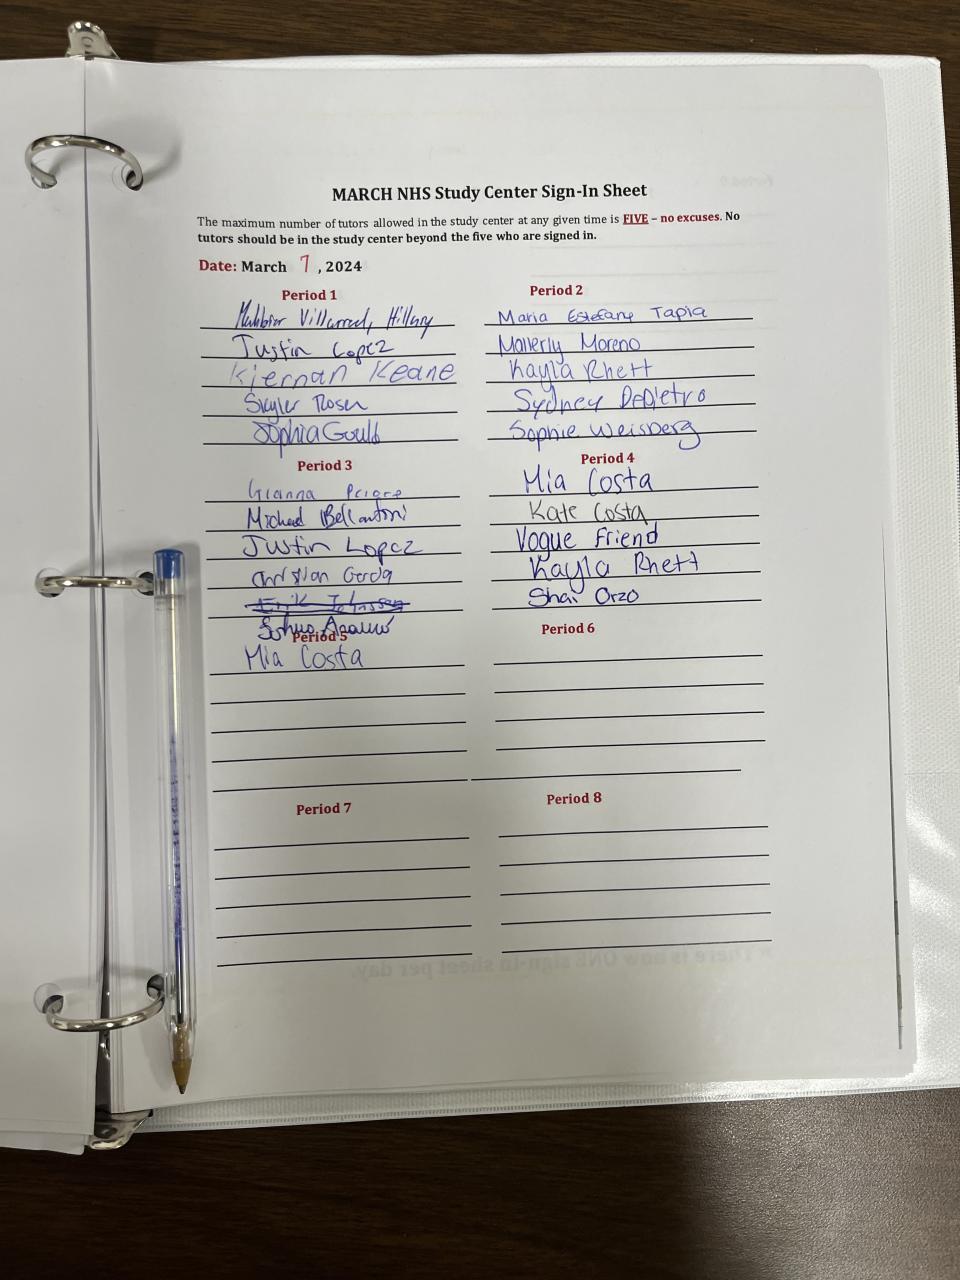 MARCH NHS Study Center Sign-In Sheet
The maximum number of tutors allowed in the study center at any given time is FIVE – no excuses. No
tutors should be in the study center beyond the five who are signed in.
Date: March 7, 2024
Period 1
Villarreal, Hillary
Justin Lopez
Kiernan Keane
Skyler Rosen
Sophia Gould
Period 2
Maria Estefany Tapia
Mallerly Moreno
Kayla Rhett
Sydney DePietro
Sophie Weisberg
Period 3
Gianna
Michael Bellantoni
Justin Lopez
Christian
Erik Johnssen
Period 4
Mia Costa
Kate Costa
Vogue Friend
Kayla Rhett
Shai Orzo
Period 5
Mia Costa
Period 6
Period 7
Period 8
* There is now ONE sign-in sheet per day.